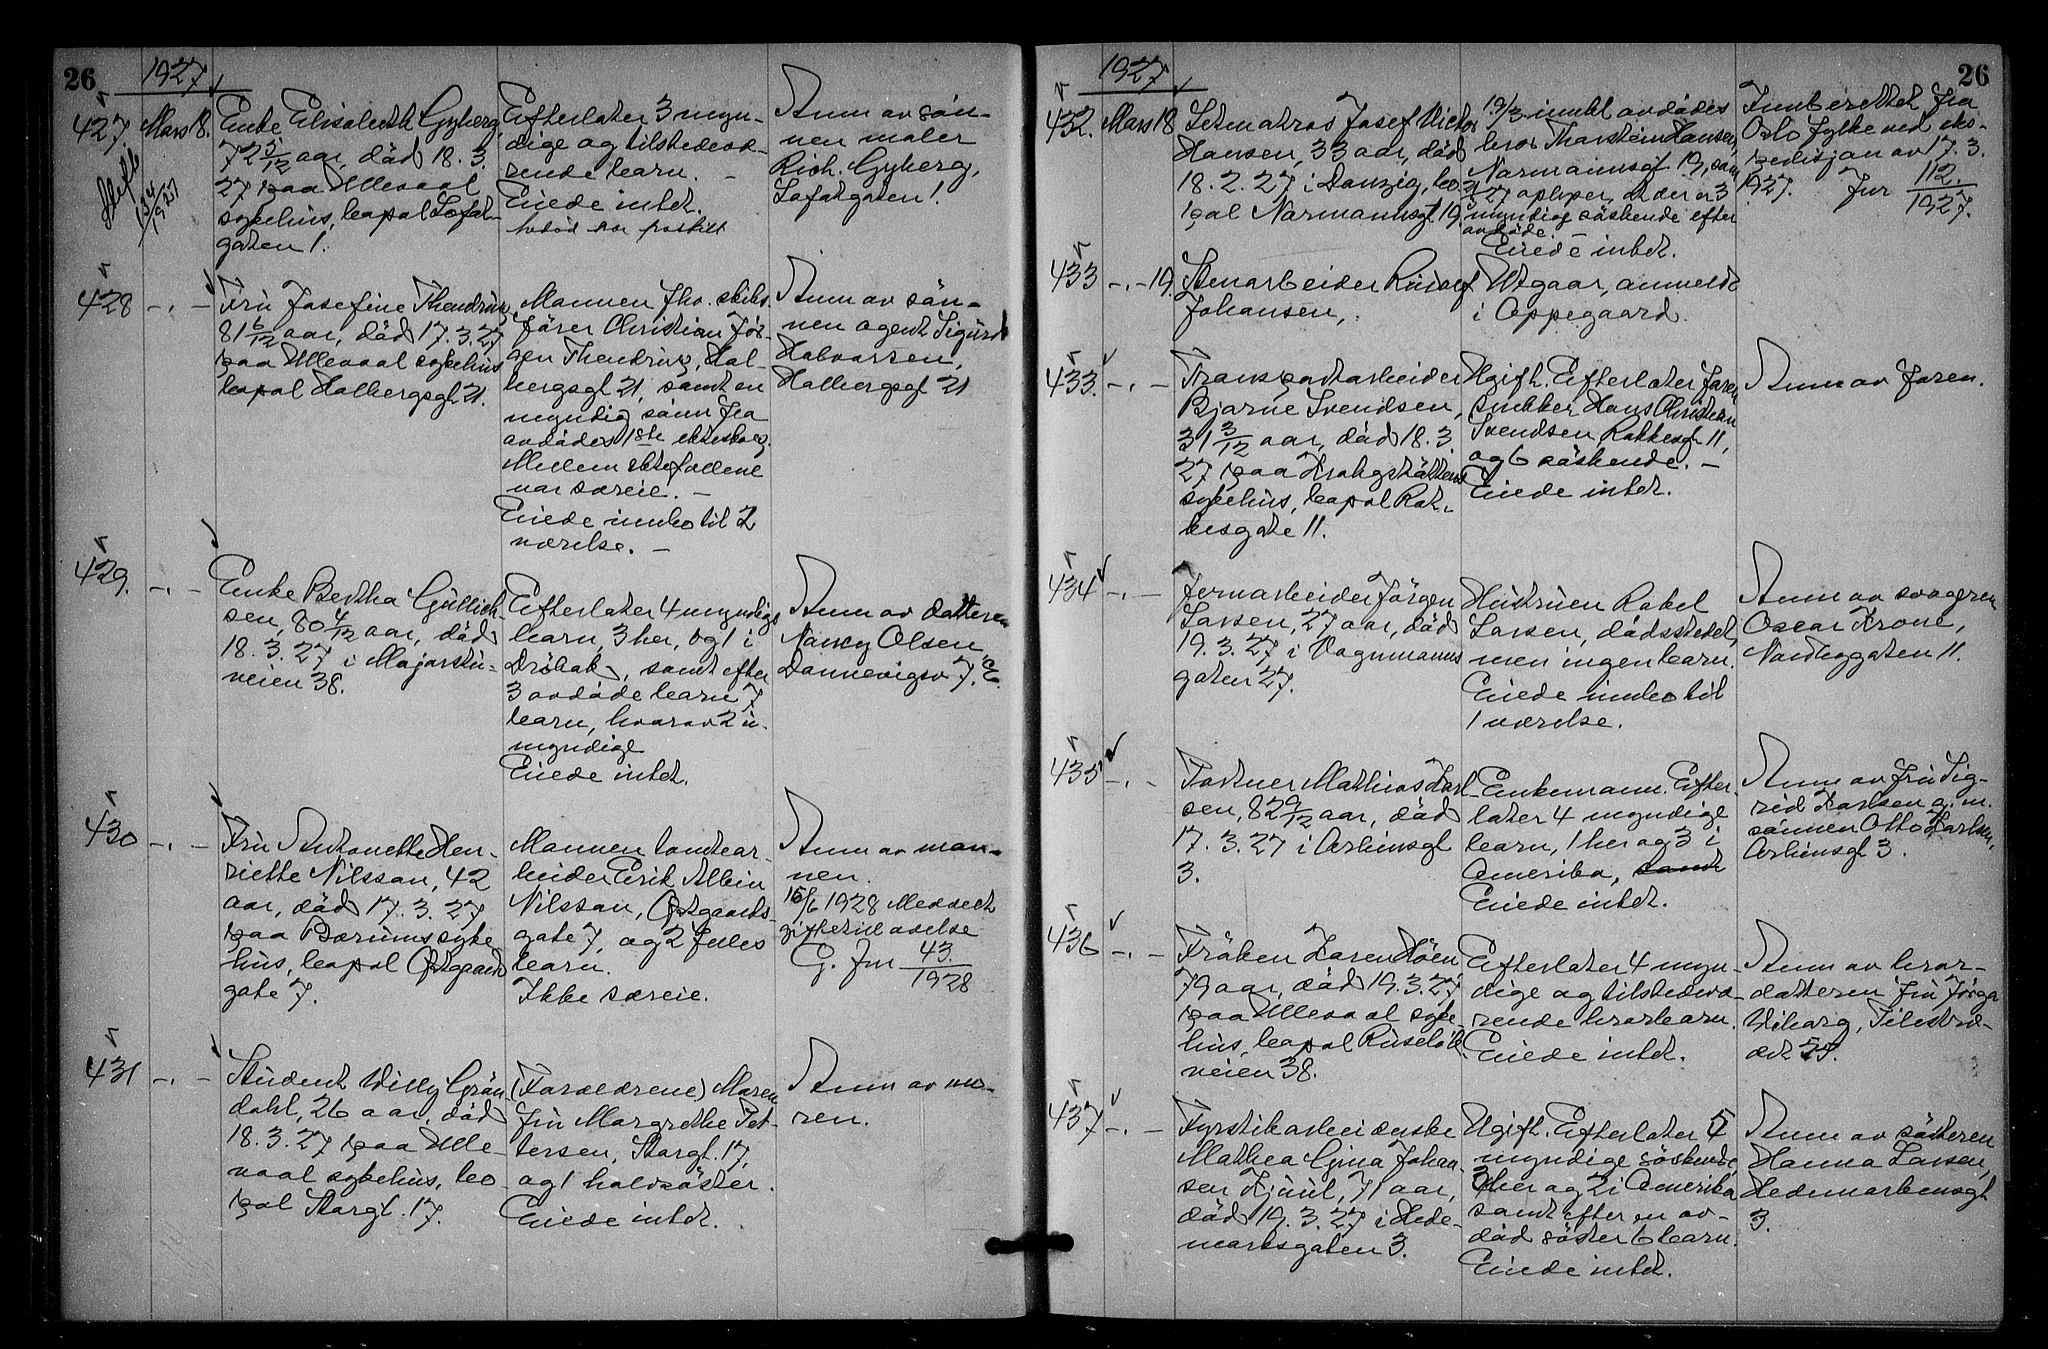 26
1927
427. Mars 18.
Enke Elisabeth Gyberg
72 5/12 aar, död 18. 3.
27 paa Ullevaal
sykehus, bopæl Lofot-
gaten 1.
Efterlater 3 myn-
dige og tilstedevæ-
rende barn. –
Eiede intet.
Anm av søn-
nen maler
Rich. Gyberg,
Lofotgaten 1.
428 -.-
Fru Josefine Thendrup
81 6/12 aar, död 17. 3. 27
paa Ullevaal sykehus
bopæl Holbergsgt 21.
Mannen fhv. skibs-
förer Christian Jör-
gen Thendrup, Hol-
bergsgt 21, samt en
myndig sönn fra
avdödes 1ste ekteskap.
Mellem ektefollene
var særeie. –
Eiede innbo til 2
værelse. –
Anm av sön-
nen agent Sigurd
Halvorsen,
Holbergsgt 21
429. -.-
Enke Bertha Gullich-
sen, 80 4/12 aar, död
18. 3. 27 i Majorstu-
veien 38.
Efterlater 4 myndige
barn, 3 her, og 1 i
Dröbak, samt efter
3 avdöde barn 7
barn, hvorav 2 u-
myndige
Eiede intet.
Anm av datteren
Nancy Olsen,
Dannevigsv 7.
430 -.-
Fru Antonette Hen-
riette Nilsson, 42
aar, död 17. 3. 27
paa Bærums syke
hus, bopæl Opsgaards
gate 7.
Mannen tomtear-
beider Erik Albin
Nilsson, Opsgaards-
gate 7, og 2 felles
barn.
Ikke særeie.
Anm av man-
nen.
15/6 1928 Meddelt
gifterm avelse
G. Jnr 43/1928
431 -.-
Student Willy Grön
dahl, 26 aar, död
18. 3. 27 paa Ulle-
vaal sykehus, bo-
pæl Storgt. 17.
(Forældrene) Moren
fru Margrethe Pet-
tersen, Storgt. 17,
og 1 halvsöster.
Eiede intet.
Anm av mo-
ren.
26
1927
432. Mars 18
Letmatros Josef Victor
Hansen, 33 aar, död
18. 2. 27 i Danzig, bo-
pæl Normannsgt 19.
19/3 innkl avdödes
bror Thorstein Hansen,
Normannsgt 19, som
opplyser, at der er 3
myndige söskende efter
avdöde.
Eiede intet.
Innberettet fra
Oslo fylke ved eks-
pedisjon av 17. 3.
1927. Jnr 112./1927.
433 -.- 19.
Stenarbeider Rudolf
Johansen,
Utgaar, anmeldt
i Oppegaard.
433. -.-
Transportarbeider
Bjarne Svendsen,
31 3/12 aar, död 18. 3.
27 paa Krohgstöttens
sykehus, bopæl Rat-
kesgate 11.
Ugift. Efterlater faren
snekker Hans Christian
Svendsen, Ratkesgt 11,
og 6 söskende. –
Eiede intet.
Anm av faren.
434 -.-
Jernarbeider Jörgen
Larsen, 27 aar, död
19. 3. 27 i Vognmanns
gaten 27.
Hustruen Rakel
Larsen, dödsstedet,
men ingen barn.
Eiede innbo til
1 værelse.
Anm av svogeren
Oscar Krone,
Nordbygaten 11.
435 -.-
Portner Mathias Karl-
sen, 82 9/12 aar, död
17. 3. 27 i Orknøsgt
3.
Enkemann. Efter-
later 4 myndige
barn, 1 her og 3 i
Amerika, samt
Eiede intet.
Anm av fru Sig-
rid Karlsen g. m.
sönnen Otto Karlsen,
436 -.-
Fröken Karen Höen,
79 aar, död 19. 3. 27
paa Ullevaal syke-
hus, bopæl Ruselök-
veien 38.
Efterlater 4 myn-
dige og tilstedevæ-
rende brorbarn.
Eiede intet.
Anm av bror-
datteren fru Jörga
Wiborg, Pilestræ-
det 55.
437 -.-
Fyrstikarbeiderske
Mathea Gina Johan-
sen Kjuul, 71 aar,
död 19. 3. 27 i Hede-
marksgaten 3.
Ugift. Efterlater 5
myndige söskende
3 her og 2 i Amerika
samt efter en av-
död söster 6 barn.
Eiede intet.
Anm av søsteren
Hanna Larsen,
Hedemarkensgt
3.